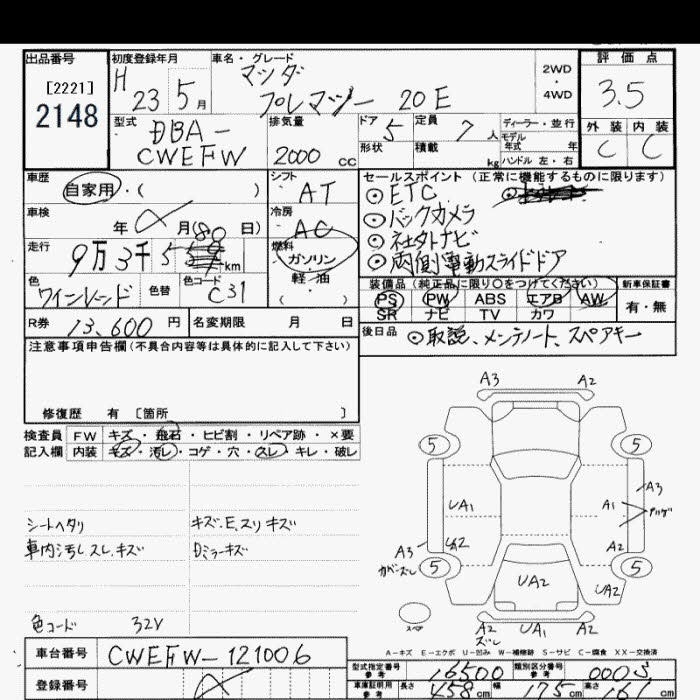 出品番号 初度登録年月 車名・グレード 評価点
[2221] H 23 5月 マツダ 2WD ・ 4WD 3.5
2148 プレマシー 20E
型式 DBA- 排気量 ドア 5 定員 7人 ディーラー・並行 外装 内装
CWEFW 2000cc 形状 積載 kg モデル年式 年 C C
ハンドル 左・右
車歴 自家用・( ) シフト AT セールスポイント (正常に機能するものに限ります)
車検 年 月 ( 日) 冷房 AC ⊙ETC
⊙バックカメラ
走行 9万3千5 km 燃料 ガソリン・軽油 ( ) ⊙社外ナビ
⊙両側電動スライドドア
色 ワインレッド 色替 色コード C31 装備品 (純正品に限り○をつけてください) 新車保証書
PS PW ABS エアB AW 有・無
SR ナビ TV カワ
R券 13,600円 名変期限 月 日 後日品 ⊙取説、メンテノート、スペアキー
注意事項申告欄 (不具合内容等は具体的に記入して下さい)
修復歴 有 [箇所 ]
検査員記入欄 FW キズ・飛石・ヒビ割・リペア跡・×要
内装 キズ・汚レ・コゲ・穴・スレ・キレ・破レ
シートヘタリ キズ、E、スリキズ
車内汚レ、スレ、キズ Dミラーキズ
色コード 32V
A3 A2
5 5
UA1 A1 A3
A3 A2
5 5
UA2 UA2
A2 UA1 A2
ズレ
A-キズ E-エクボ U-凹み W-補修跡 S-サビ C-腐食 XX-交換済
車台番号 CWEFW-121006 型式指定番号 参考 16500 類別区分番号 参考 0003
登録番号 車庫証明用 参考 長さ 458cm 幅 175cm 高さ 161cm